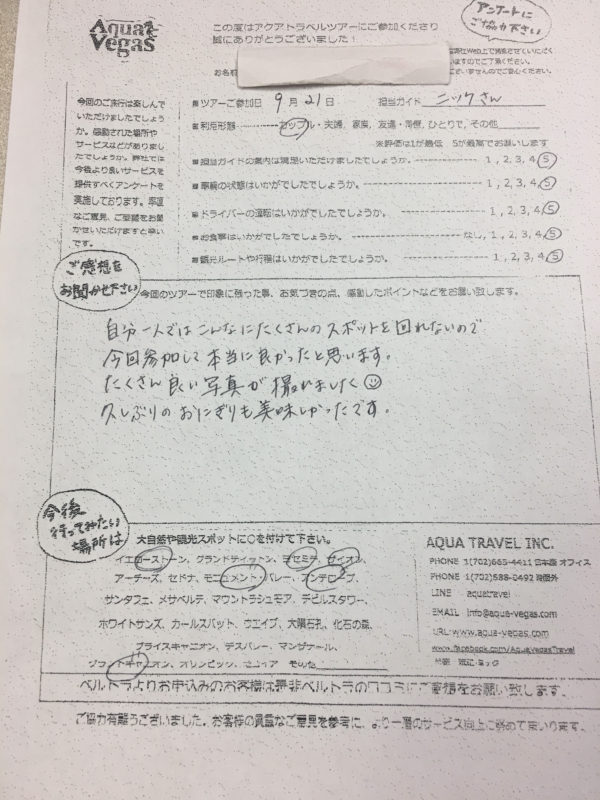 Aqua Vegas
この度はアクアトラベルツアーにご参加くださり
誠にありがとうございました！
アンケートに
ご協力下さい
お名前
今回のご旅行は楽しんで
いただけましたでしょう
か。感動された場所や
サービスなどがありまし
たでしょうか。弊社では
今後より良いサービスを
提供すべくアンケートを
実施しております。率直
なご意見、ご要望をお聞
かせいただけますと幸い
です。
■ツアーご参加日 9月21日 担当ガイド ニックさん
■利用形態 カップル・夫婦、家族、友達・同僚、ひとりで、その他
※評価は1が最低 5が最高でお願いします
■担当ガイドの案内は満足いただけましたでしょうか。 1,2,3,4,5
■車輌の状態はいかがでしたでしょうか。 1,2,3,4,5
■ドライバーの運転はいかがでしたでしょうか。 1,2,3,4,5
■お食事はいかがでしたでしょうか。 なし,1,2,3,4,5
■観光ルートや行程はいかがでしたでしょうか。 1,2,3,4,5
ご感想を
お聞かせ下さい
今回のツアーで印象に残った事、お気づきの点、感動したポイントなどをお願い致します。
自分一人ではこんなにたくさんのスポットを回れないので
今回参加して本当に良かったと思います。
たくさん良い写真が撮れました
久しぶりのおにぎりも美味しかったです。
今後
行ってみたい
場所は
大自然や観光スポットに○を付けて下さい。
イエローストーン、グランドティットン、ヨセミテ、ザイオン、
アーチーズ、セドナ、モニュメント・バレー、アンテロープ、
サンタフェ、メサベルデ、マウントラシュモア、デビルスタワー、
ホワイトサンズ、カールスバット、ウエイブ、大隕石孔、化石の森、
ブライスキャニオン、デスバレー、マンザナール、
グランドキャニオン、オリンピック、セコイア その他
AQUA TRAVEL INC.
PHONE 1(702)665-4411 日本語オフィス
PHONE 1(702)588-0492 時間外
LINE aquatravel
EMAIL info@aqua-vegas.com
URL www.aqua-vegas.com
www.facebook.com/AquavegasTravel
ベルトラよりお申込みのお客様は是非ベルトラの口コミにご感想をお願い致します。
ご協力有難うございました。お客様の貴重なご意見を参考に、より一層のサービス向上に努めて参ります。